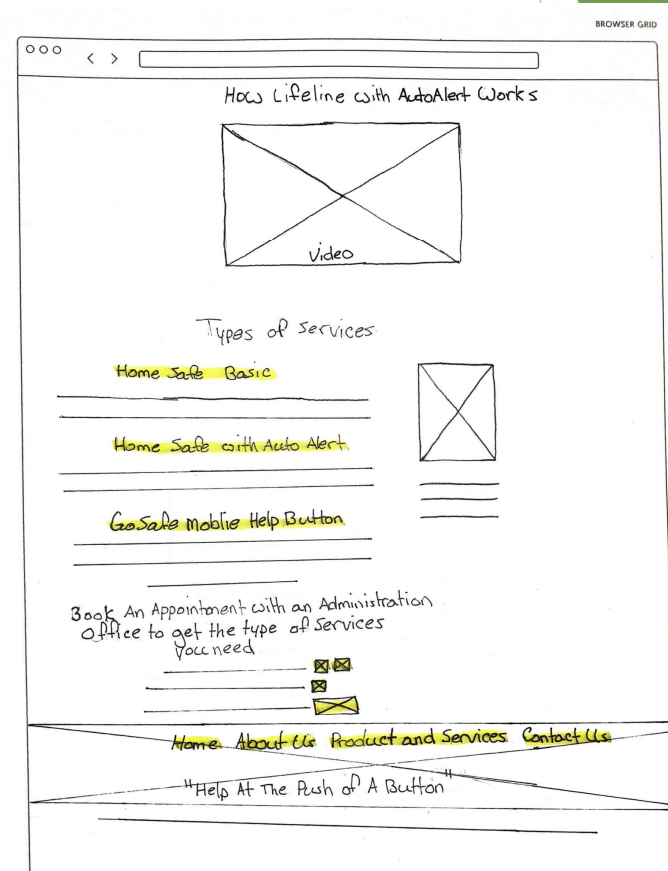 BROWSER GRID
How Lifeline with AutoAlert Works
Video
Types of Services
Home Safe Basic
Home Safe with Auto Alert
GoSafe Moblie Help Button
Book An Appointment with an Administration
Office to get the type of Services
you need
Home About Us Product and Services Contact Us
"Help At The Push of A Button"